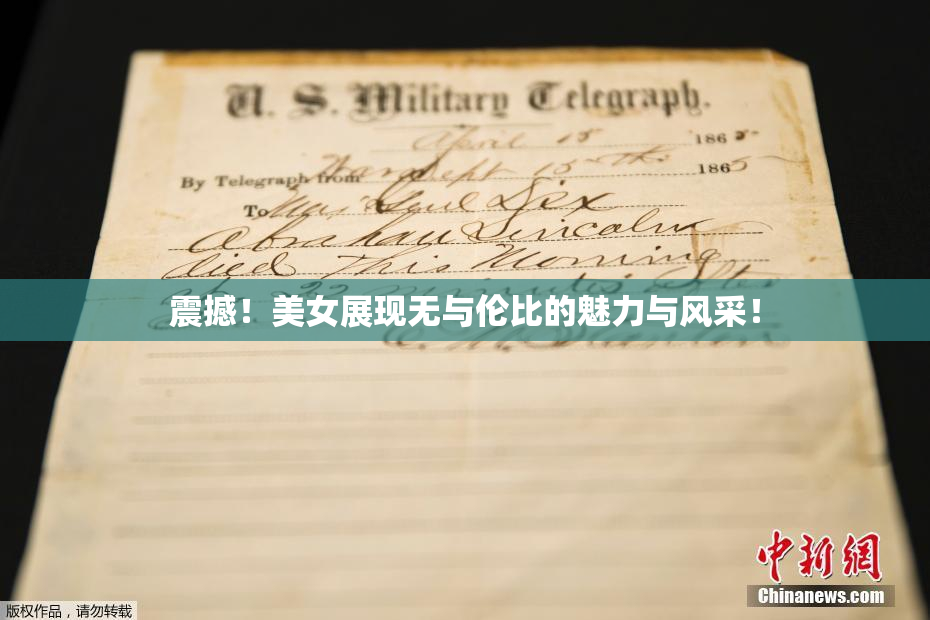 U. S. Military Telegraph.
April 15 1865
By Telegraph from War Dept 15th 1865
To Maj Genl Dix
Abraham Lincoln
died This Morning
at 22 minutes after
震撼！美女展现无与伦比的魅力与风采！
E. M. Stanton
中新網
Chinanews.com
版权作品，请勿转载